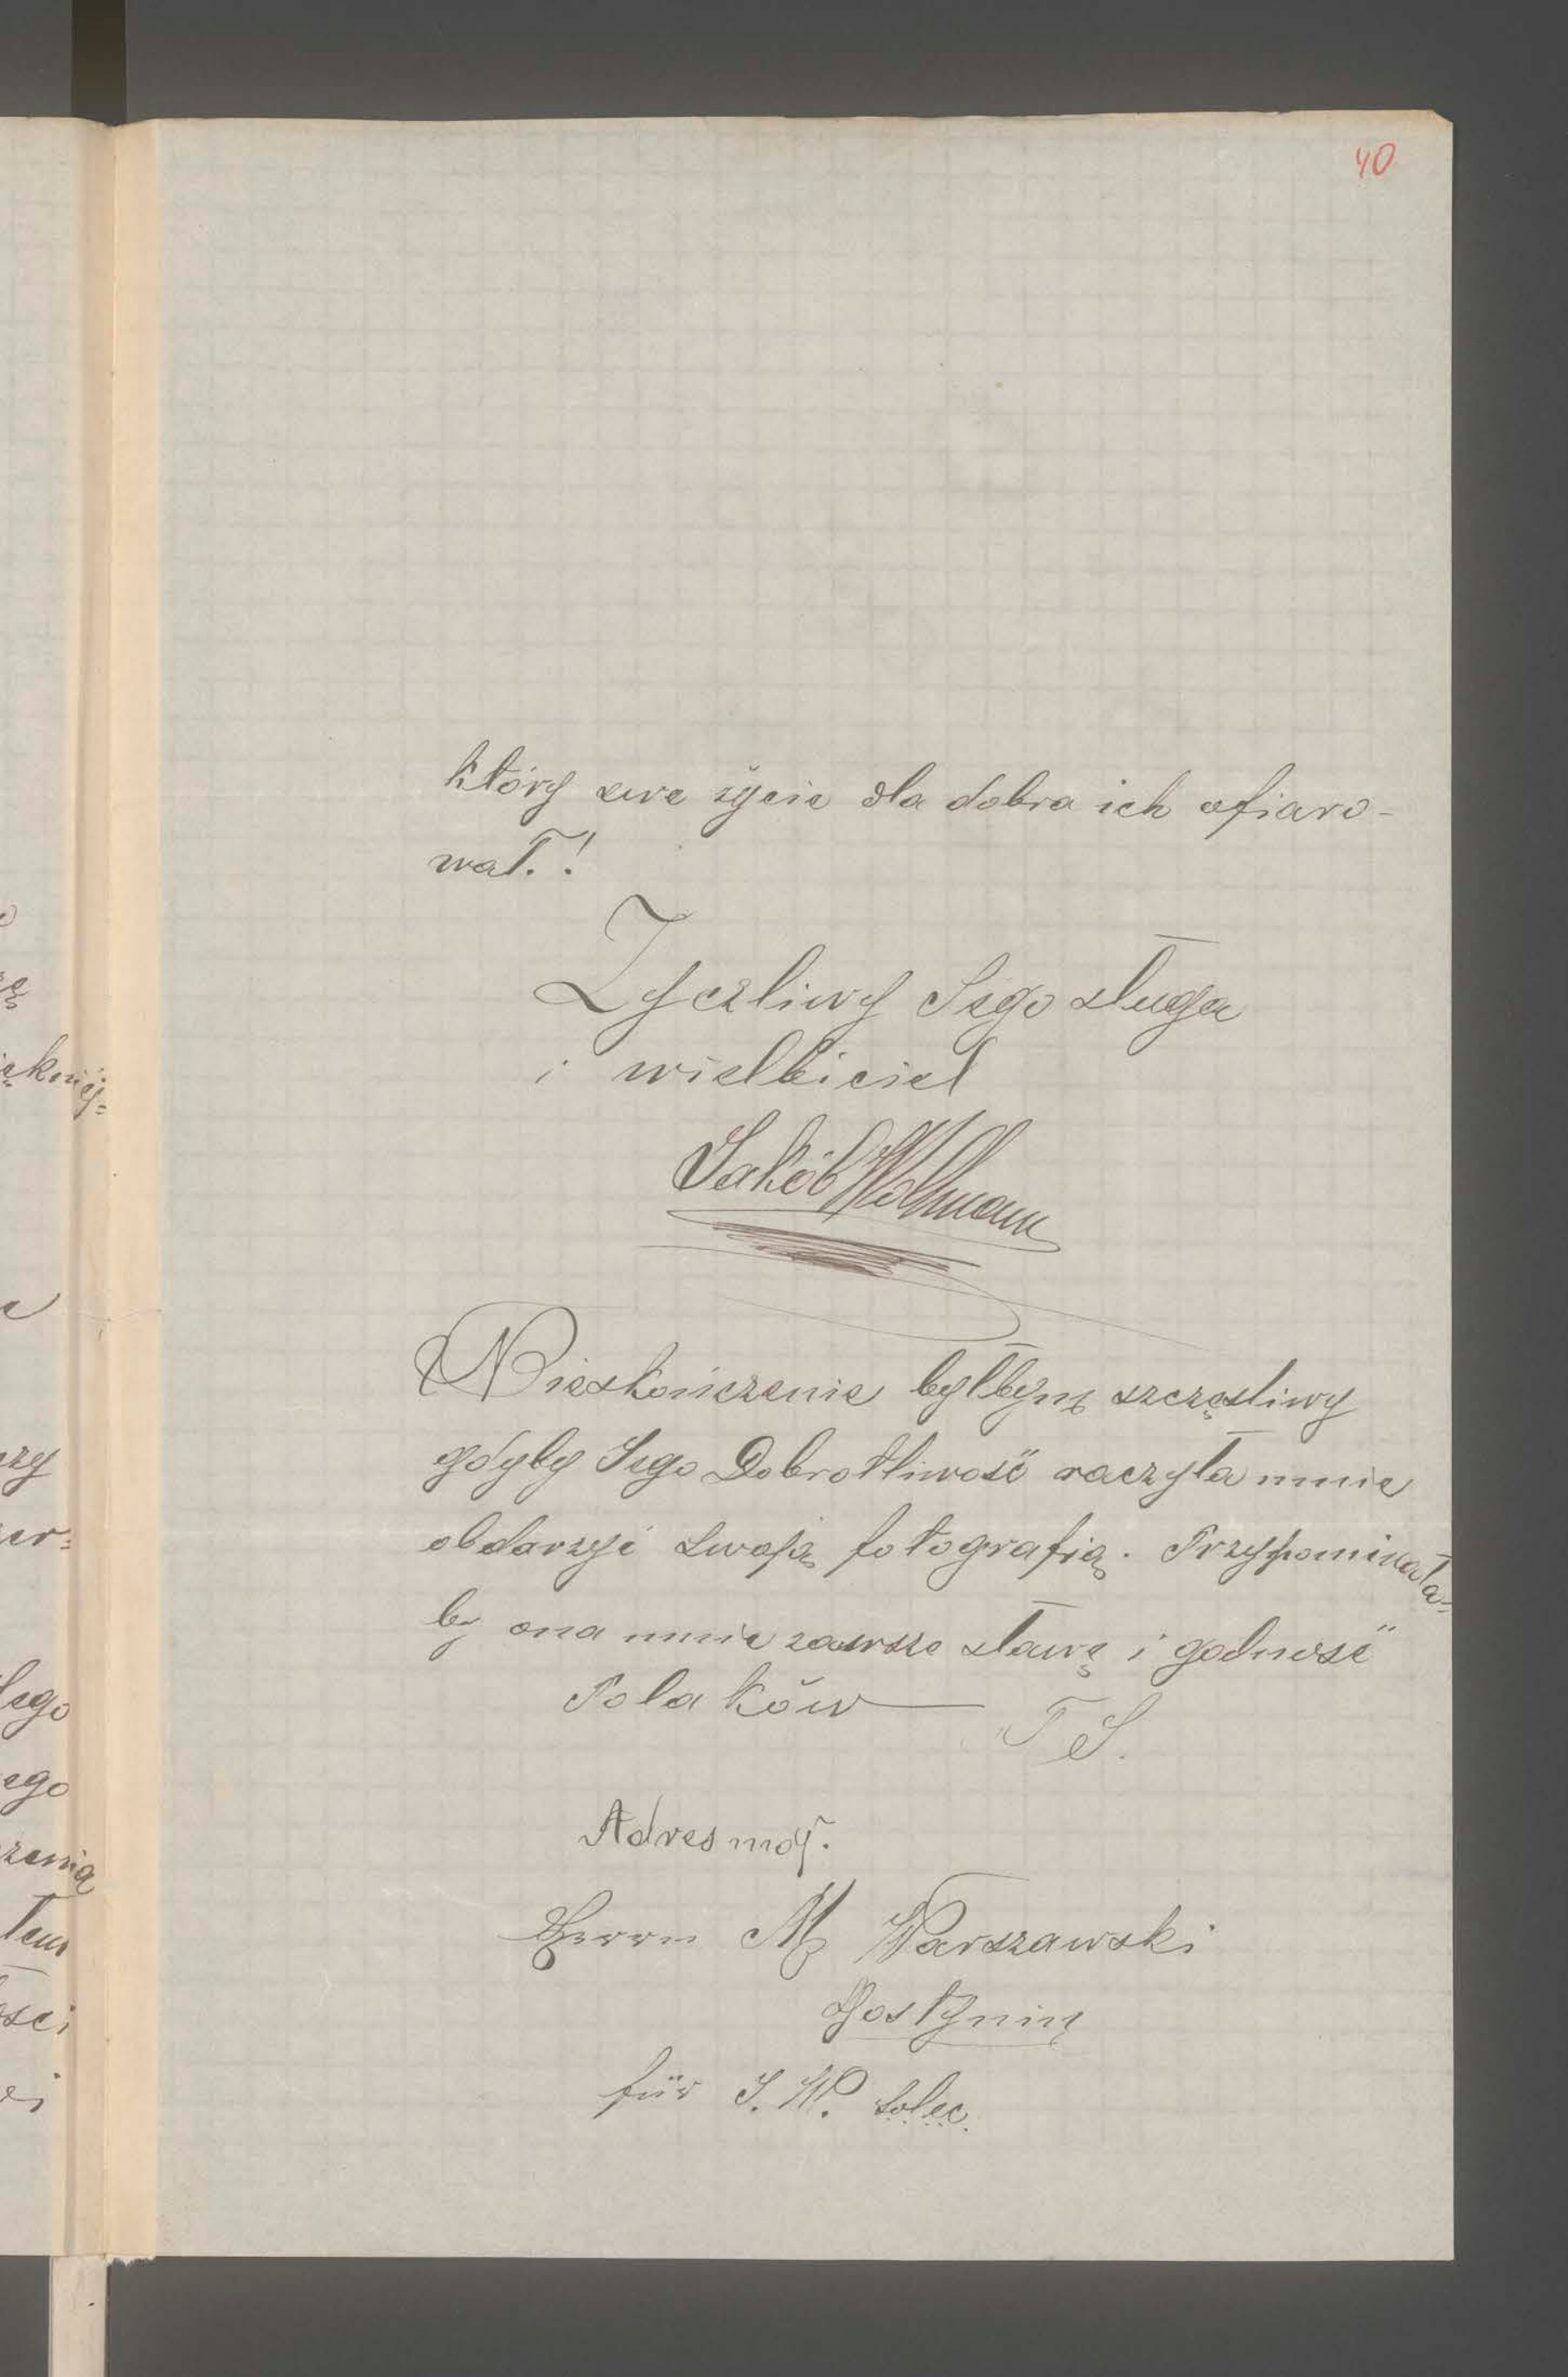 40
który swe życie dla dobra ich ofiaro-
wał.!
Życzliwy Jego sługa
i wielbiciel
Jakób
Nieskończenie byłbym szczęsliwy
gdyby Jego Dobrotliwość raczyła mnie
obdarzyć swoją fotografią. Przypominała-
by ona mnie zawsze sławę i godność
Polaków
Adres mój.
Herrn M Warszawski
Gostynin
für J. W. Solec.